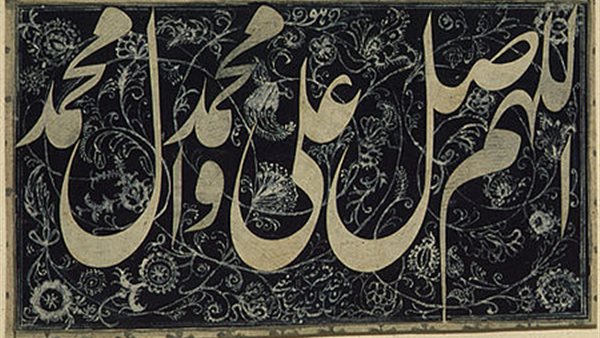 هو
اللهم صل علی محمد وآل محمد